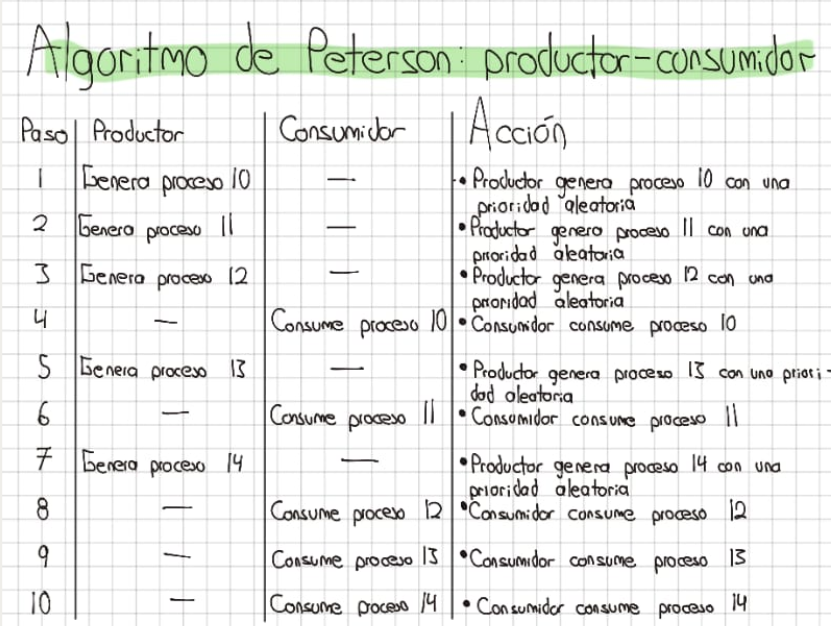 Algoritmo de Peterson: productor-consumidor
Paso Productor Consumidor Acción
1 Genera proceso 10 — • Productor genera proceso 10 con una
prioridad aleatoria
2 Genera proceso 11 — • Productor genera proceso 11 con una
prioridad aleatoria
3 Genera proceso 12 — • Productor genera proceso 12 con una
prioridad aleatoria
4 — Consume proceso 10 • Consumidor consume proceso 10
5 Genera proceso 13 — • Productor genera proceso 13 con una priori-
dad aleatoria
6 — Consume proceso 11 • Consumidor consume proceso 11
7 Genera proceso 14 — • Productor genera proceso 14 con una
prioridad aleatoria
8 — Consume proceso 12 • Consumidor consume proceso 12
9 — Consume proceso 13 • Consumidor consume proceso 13
10 — Consume proceso 14 • Consumidor consume proceso 14